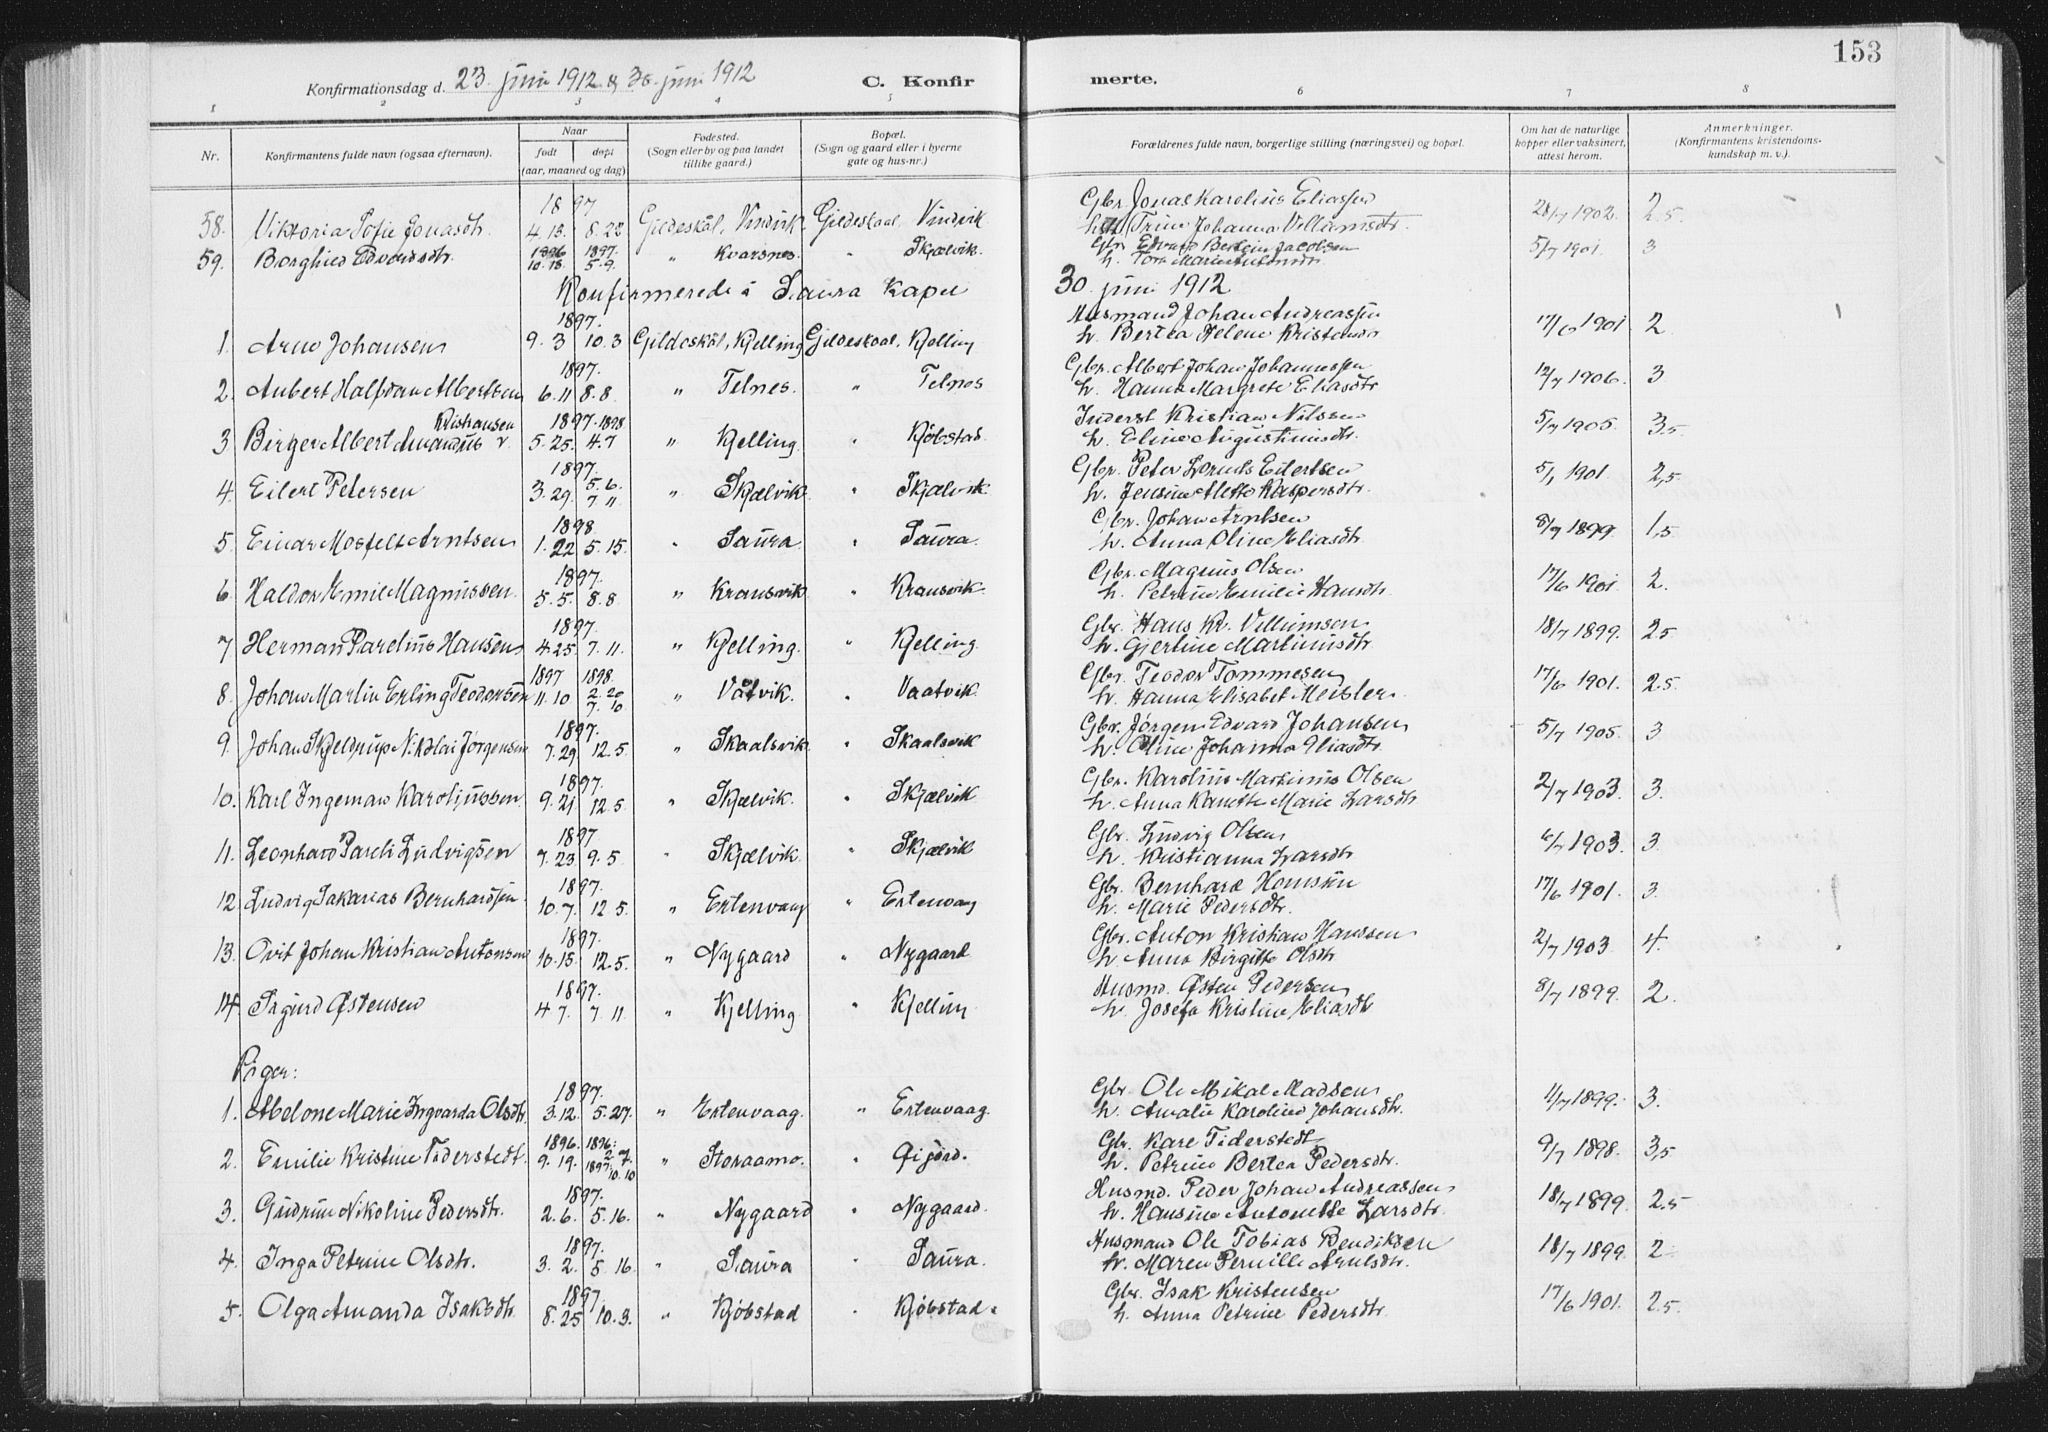 153
Konfirmationsdag d. 23. juni 1912 & 30. juni 1912 C. Konfir merte.
1 2 3 4 5 6 7 8
Nr. Konfirmantens fulde navn (ogsaa efternavn). Naar født døpt (aar, maaned og dag) Fødested. (Sogn eller by og paa landet tillike gaard.) Bopæl. (Sogn og gaard eller i byerne gate og hus-nr.) Forældrenes fulde navn, borgerlige stilling (næringsvei) og bopæl. Om hat de naturlige kopper eller vaksinert, attest herom. Anmerkninger. (Konfirmantens kristendoms-kundskap m. v.).
1897 Gbr. Jonas Karelius Eliassen
58. Viktoria Sofie Jonasdtr. 4.13. 8.22 Gildeskål, Vindvik. Gildeskaal, Vindvik h. Trine Johanna Villumsdtr. 28/7 1902. 2.5.
1896 1897. Gbr. Edvard Jacobsen
59. Borghild Edvardsdtr. 10.18. 5.9. " Kvarsnes. " Skjælvik. h. 5/7 1901. 3
Konfirmerede i Saura Kapel 30. juni 1912
1897. Husmand Johan Andreassen
1. Arne Johansen 9.3 10.3 Gildeskål, Kjelling Gildeskaal, Kjelling h. Bertea Helene Kristensdtr 17/6 1901 2
1897. Gbr. Albert Johan Johannessen
2. Aubert Halfdan Albertsen 6.11 8.8. " Telnes. " Telnes h. Hanna Margrete Eliasdtr 12/7 1906. 3
Kristiansen 1897. 1898 Inderst Kristian Nilssen
3 Birger Albert Amandus v 5.25. 4.7 " Kjelling. " Kjøbstad. h. Eline Augustinusdtr. 5/7 1905. 3.5.
1897. 5.6. Gbr. Peter Lornts Eilertsen
4. Eilert Petersen 3.29. 7.11 " Skjælvik. " Skjælvik. h. Jensine Aletta Kaspersdtr. 5/1 1901. 2,5
1898. Gbr. Johan Arntsen
5. Einar Mosfelt Arntsen 1.22 5.15. " Saura. " Saura. h. Anna Oline Eliasdtr 8/7 1899 1,5
1897. Gbr. Magnus Olsen
6. Haldor Emil Magnussen. 5.5. 8.8 " Kransvik " Kransvik. h. Petrine Emilie Hansdtr. 17/6 1901. 2.
1897. Gbr. Hans Kr. Villumsen
7 Herman Parelius Hansen 4.25. 7.11. " Kjelling. " Kjelling. h. Gjertine Martinusdtr. 18/7 1899. 2.5
1897 1898. Gbr. Teodor Tommesen
8. Johan Martin Erling Teodorsen 11.10 2.20 7.10 " Våtvik. " Vaatvik. h. Hanna Elisabet Meisler. 17/6 1901. 2.5.
1897. Gbr. Jørgen Edvard Johansen
9. Johan Skjeldrup Nikolai Jørgensen 7.29. 12.5. " Skaalsvik. " Skaalsvik h. Oline Johanna Eliasdtr. 5/7 1905. 3
1897. Gbr. Karolius Martinus Olsen
10. Karl Ingeman Karoliussen. 9.21 12.5. " Skjælvik. " Skjælvik h. Anna Kanutte Marie Larsdtr 2/7 1903. 3.
1897. Gbr. Ludvig Olsen
11. Leonhard Pareli Ludvigsen 7.23 9.5. " Skjælvik. " Skjælvik h. Kristianna Larsdtr 6/7 1903. 3.
1897. Gbr. Bernhard Hansen
12. Ludvig Sakarias Bernhardsen. 10.7. 12.5. " Ertenvaag " Ertenvaag h. Marie Pedersdtr. 17/6 1901. 3.
1897. Gbr. Anton Kristian Hanssen
13. Ovit Johan Kristian Antonsen 10.15. 12.5. " Nygaard " Nygaard h. Anna Birgitte Olsdtr 2/7 1903. 4.
1897. Husmd. Østen Pedersen
14. Sigurd Østensen 4.7. 7.11. " Kjelling " Kjelling h. Josefa Kristine Eliasdtr 8/7 1899. 2.
Piger:
1897. Gbr. Ole Mikal Madsen
1. Abelone Marie Ingvarda Olsdtr. 3.12. 5.27. " Ertenvaag. " Ertenvaag. h. Amalie Karoline Johansdtr. 4/7 1899. 3.
1896. 1896: 2.7. Gbr. Kare Tiderstedt
2. Emilie Kristine Tiderstedt. 9.19. 1897. 10.10 " Storaamo. " Gijord. h. Petrine Bertea Pedersdtr. 9/7 1898. 3,5
1897. Husmd. Peder Johan Andreassen
3. Gudrun Nikoline Pedersdtr. 2.6. 5.16. " Nygaard " Nygaard. h. Hansine Antonette Larsdtr. 18/7 1899. 2.5
1897. Husmand Ole Tobias Bendiksen
4. Inga Petrine Olsdtr. 3.2. 5.16. " Saura " Saura. h. Maren Pernille Arntsdtr. 18/7 1899. 2
1897. Gbr. Isak Kristensen
5. Olga Amanda Isaksdtr. 8.25 10.3. " Kjøbstad " Kjøbstad. h. Anna Petrine Pedersdtr. 17/6 1901. 2.5.